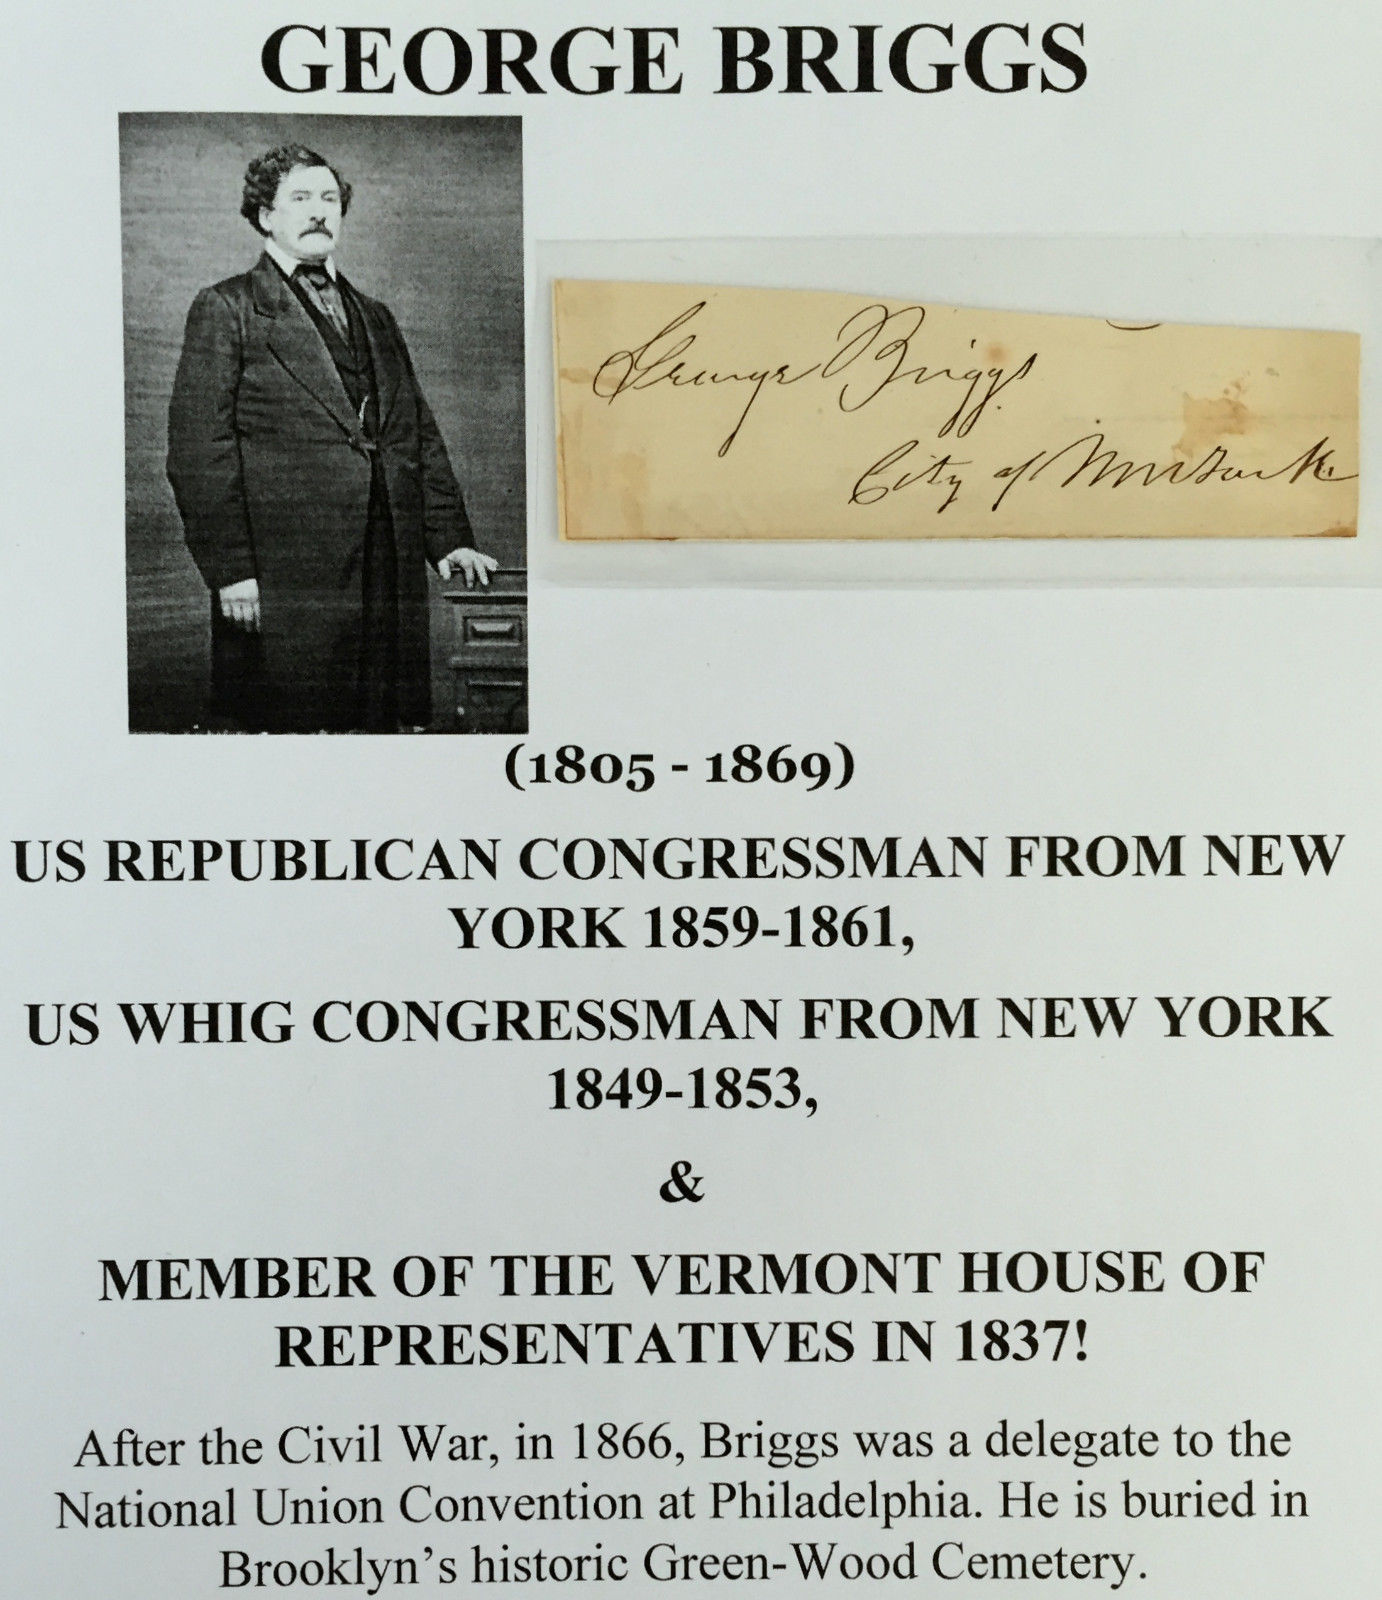 GEORGE BRIGGS
George Briggs
City of New York
(1805 - 1869)
US REPUBLICAN CONGRESSMAN FROM NEW
YORK 1859-1861,
US WHIG CONGRESSMAN FROM NEW YORK
1849-1853,
&
MEMBER OF THE VERMONT HOUSE OF
REPRESENTATIVES IN 1837!
After the Civil War, in 1866, Briggs was a delegate to the
National Union Convention at Philadelphia. He is buried in
Brooklyn’s historic Green-Wood Cemetery.